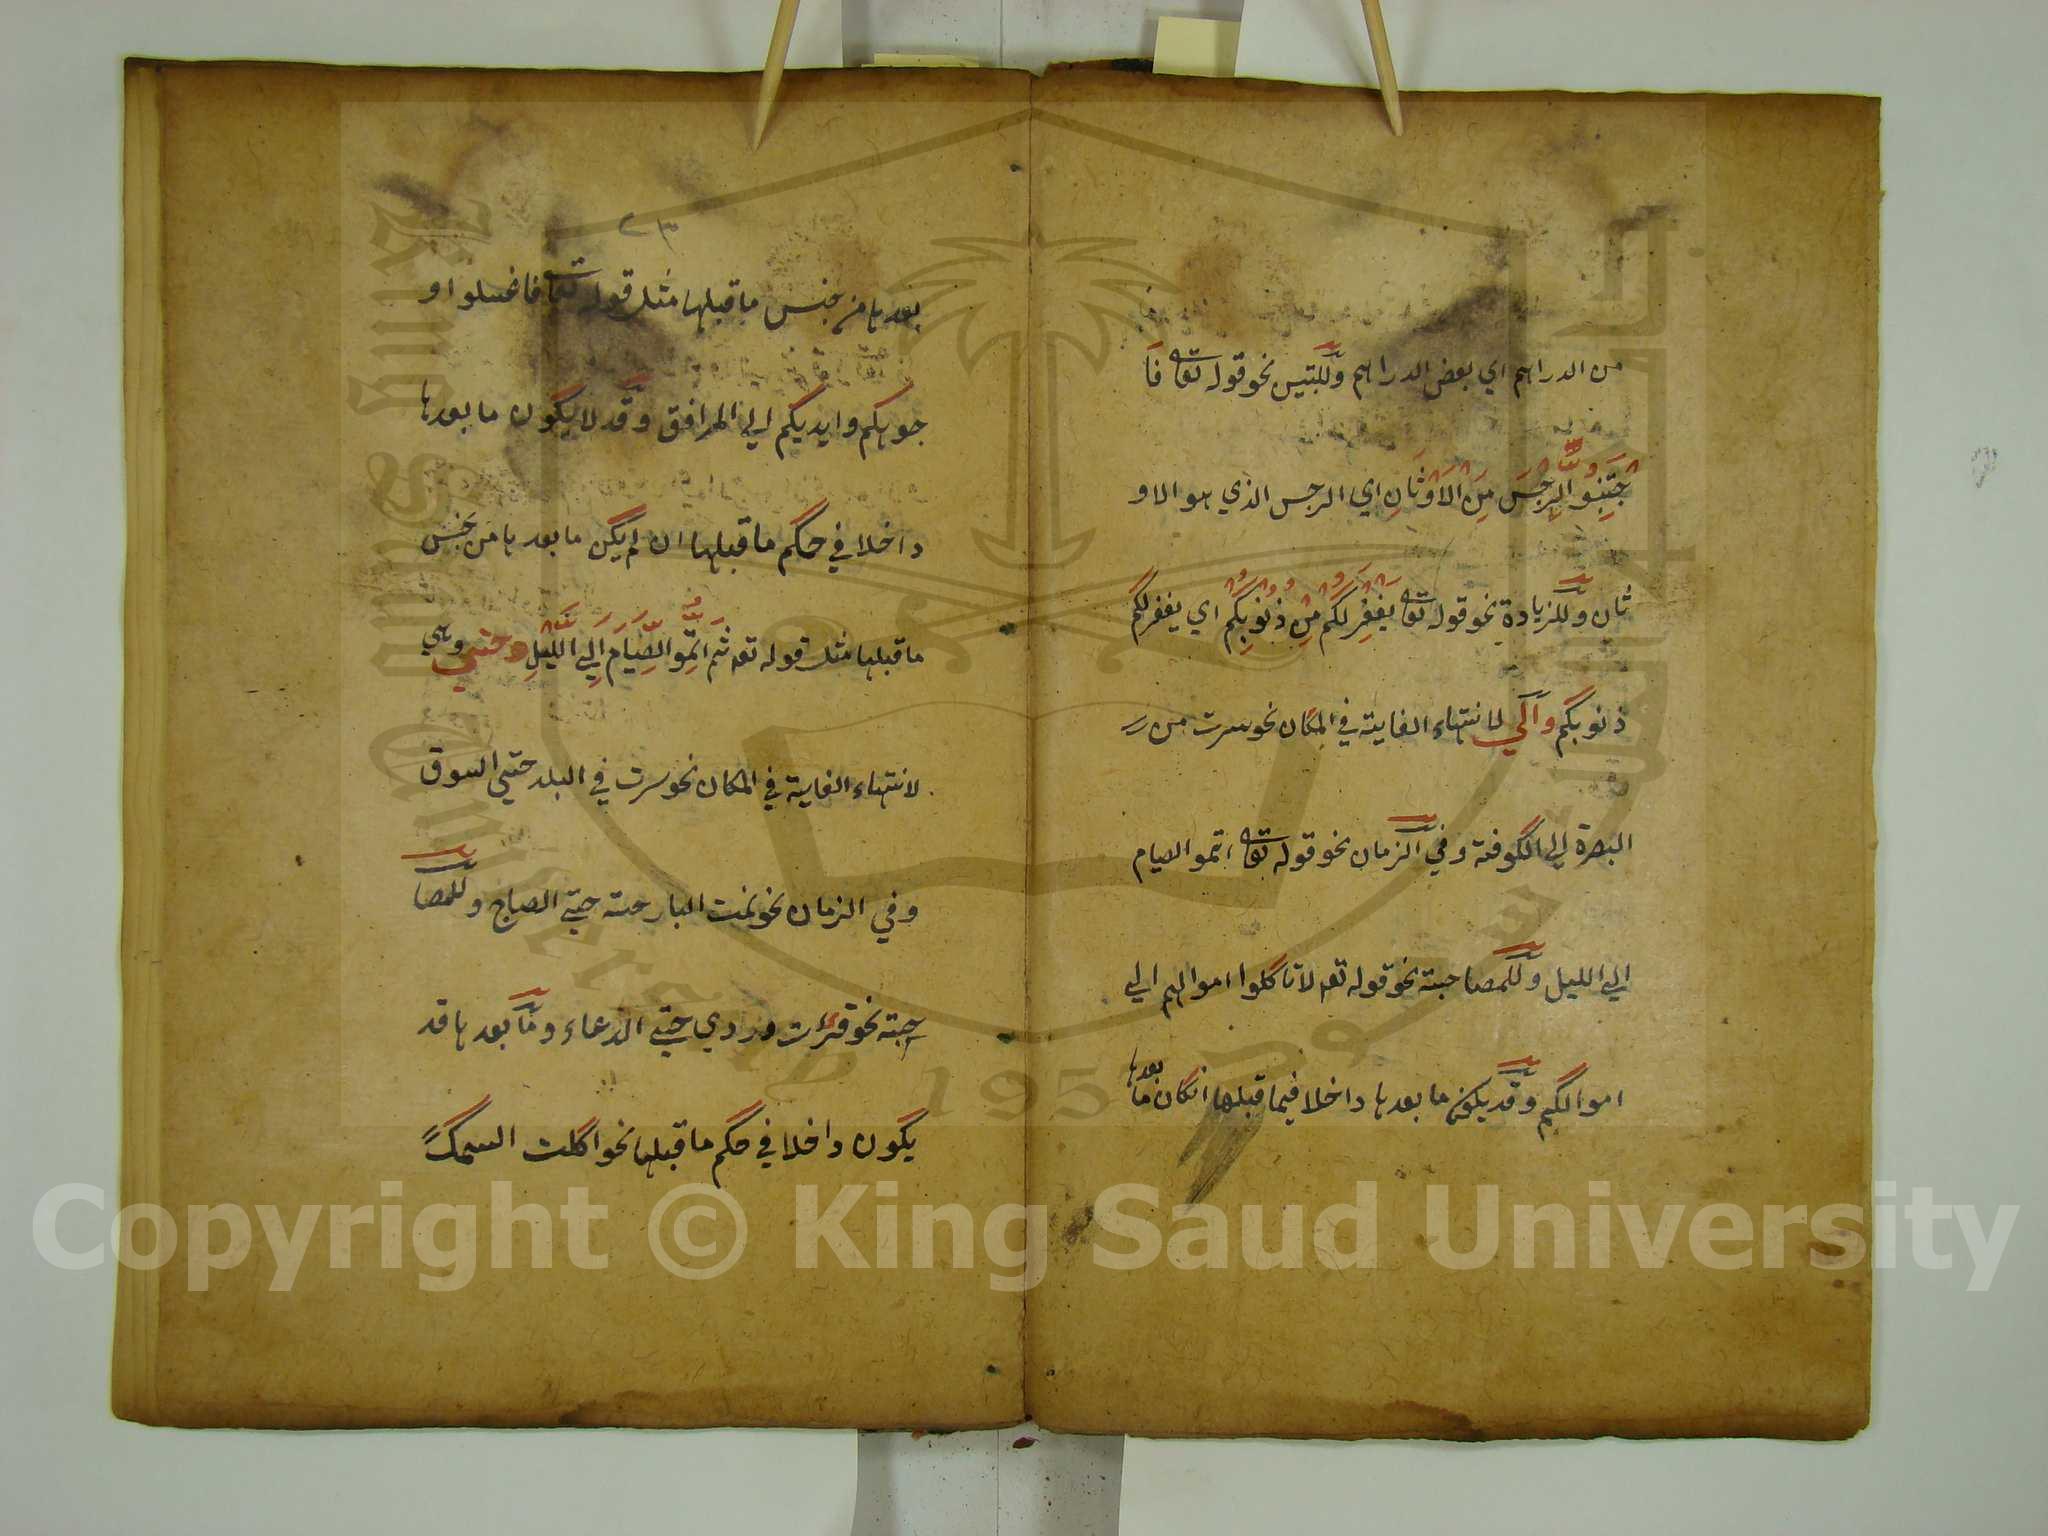 من الدراهم اي بعض الدراهم وللتبيين نحو قوله تعالى فا
جتنبو الرجس من الاوثان اي الرجس الذي هو الاو
ثان وللزيادة نحو قوله تعالى يغفر لكم من ذنوبكم اي يغفر لكم
ذنوبكم والي لانتهاء الغاية في المكان نحو سرت من
البصرة الي الكوفة وفي الزمان نحو قوله تعالى اتمو الصيام
الي الليل وللمصاحبة نحو قوله تعـ لا تاكلوا اموالهم الي
اموالكم وقد يكون ما بعدها داخلا فيما قبلها انكان ما بعدها
٢٣
بعدها من جنس ما قبلها مثل قوله تعالى فاغسلوا و
جوهكم وايديكم الي المرافق وقد لا يكون ما بعدها
داخلا في حكم ما قبلها ان لم يكن ما بعدها من جنس
ما قبلها مثل قوله تعـ ثم اتمو الصيام الي الليل وحتي وهي
لانتهاء الغاية في المكان نحو سرت في البلد حتي السوق
وفي الزمان نحو نمت البارحة حتي الصباح وللمصا
حبة نحو قرات وردي حتي الدعاء وما بعدها قد
يكون داخلا في حكم ما قبلها نحو اكلت السمك
Copyright © King Saud University